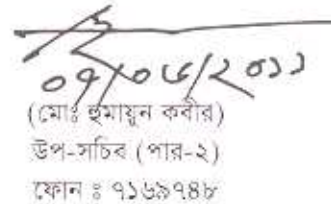 ০৭/০৬/২০১১
(মোঃ হুমায়ুন কবীর)
উপ-সচিব (পার-২)
ফোন ঃ ৭১৬৯৭৪৮